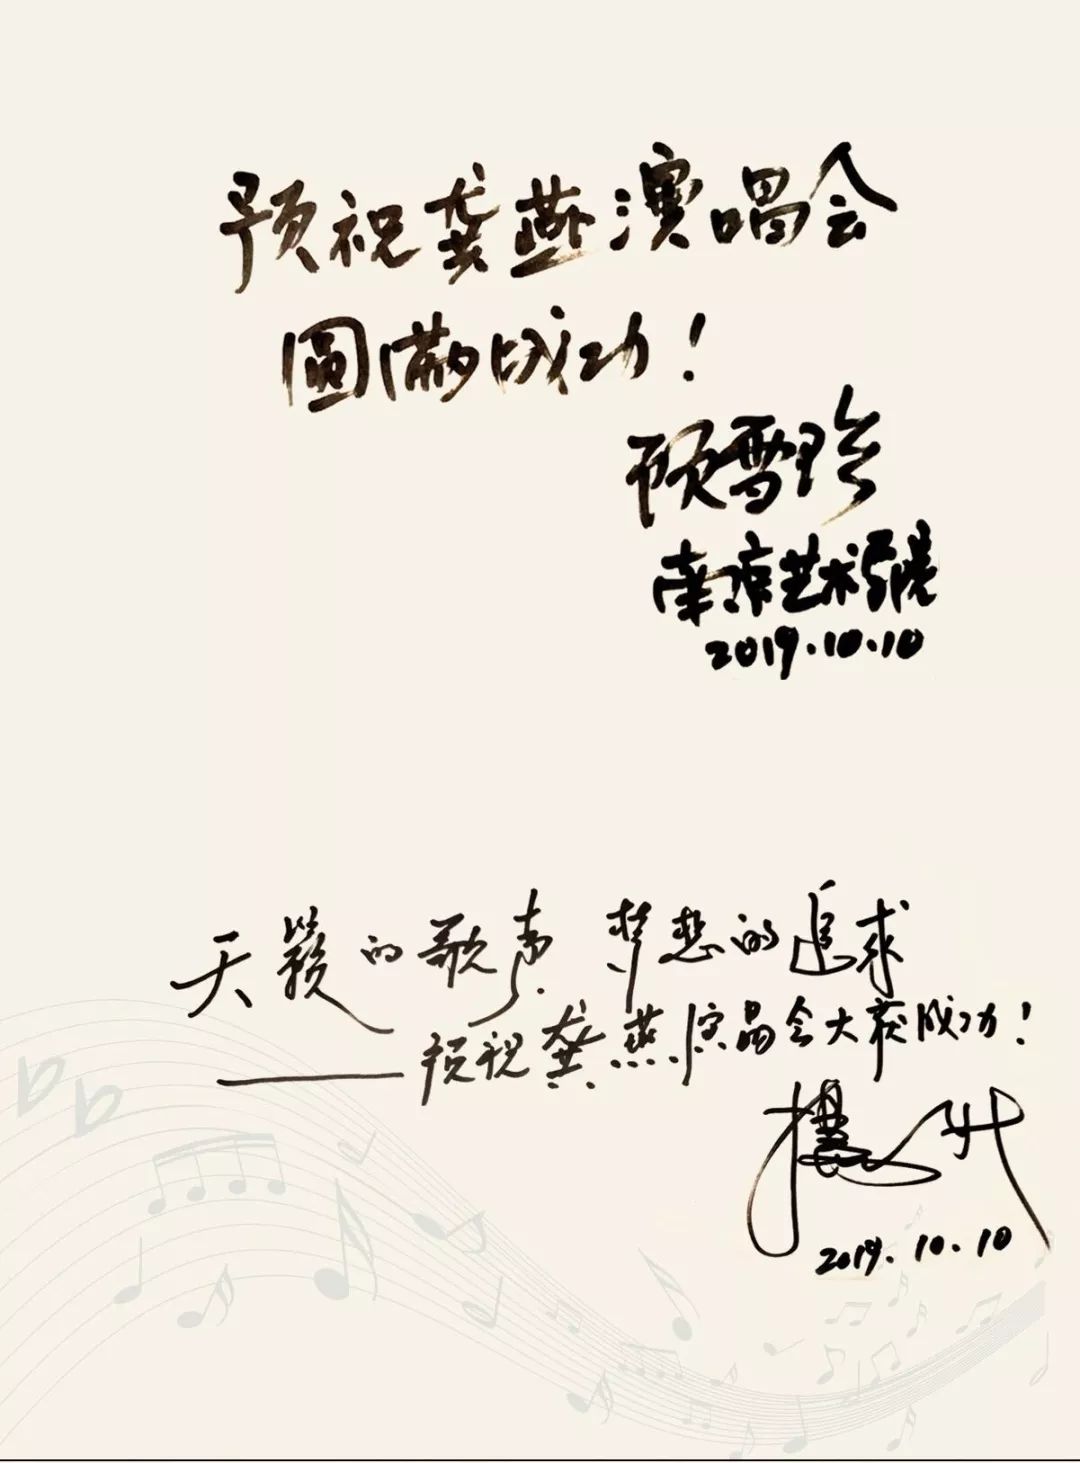 预祝龚燕演唱会
圆满成功！
顾雪珍
南京艺术学院
2019.10.10
天籁的歌声 梦想的追求
——预祝龚燕演唱会大获成功！
2019.10.10